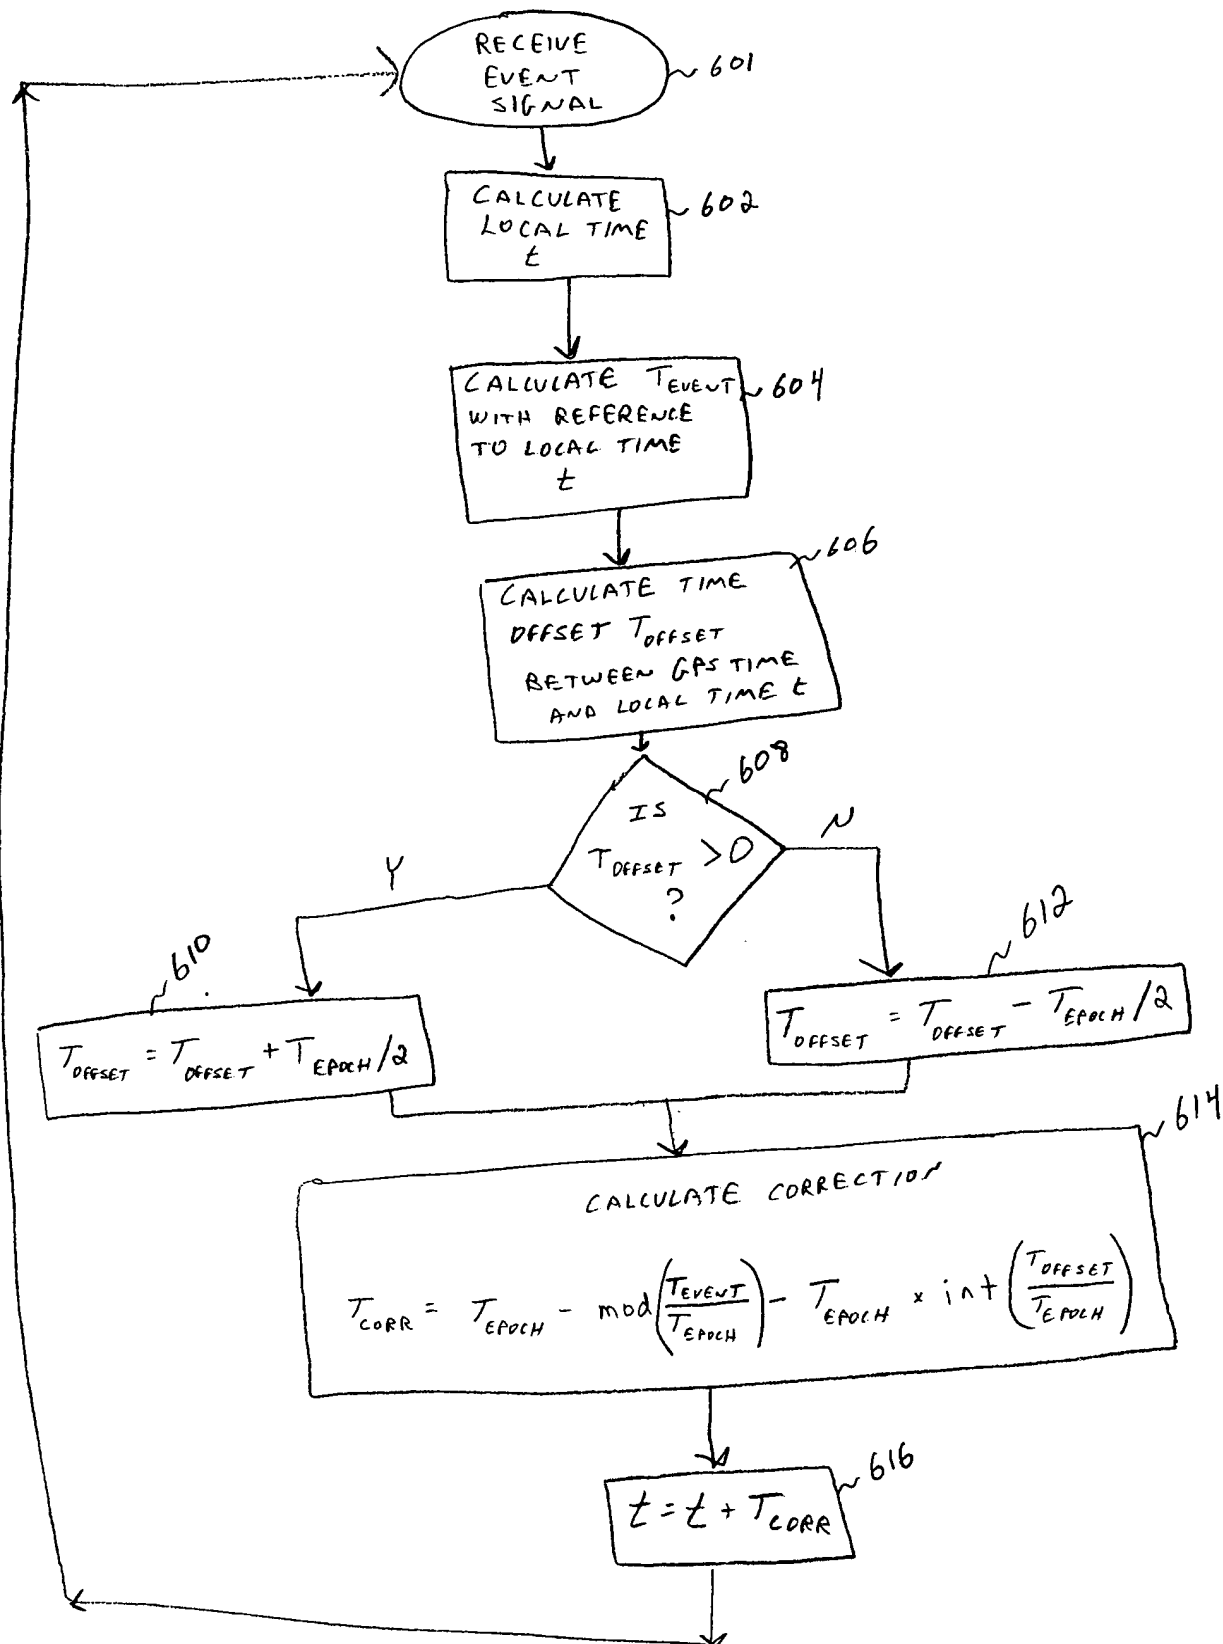 RECEIVE
EVENT
SIGNAL
601
CALCULATE
LOCAL TIME
t
602
CALCULATE T_EVENT
WITH REFERENCE
TO LOCAL TIME
t
604
CALCULATE TIME
OFFSET T_OFFSET
BETWEEN GPS TIME
AND LOCAL TIME t
606
608
IS
T_OFFSET > 0
?
Y
N
610
T_OFFSET = T_OFFSET + T_EPOCH /2
612
T_OFFSET = T_OFFSET - T_EPOCH /2
614
CALCULATE CORRECTION
T_CORR = T_EPOCH - mod(T_EVENT / T_EPOCH) - T_EPOCH × int(T_OFFSET / T_EPOCH)
616
t = t + T_CORR